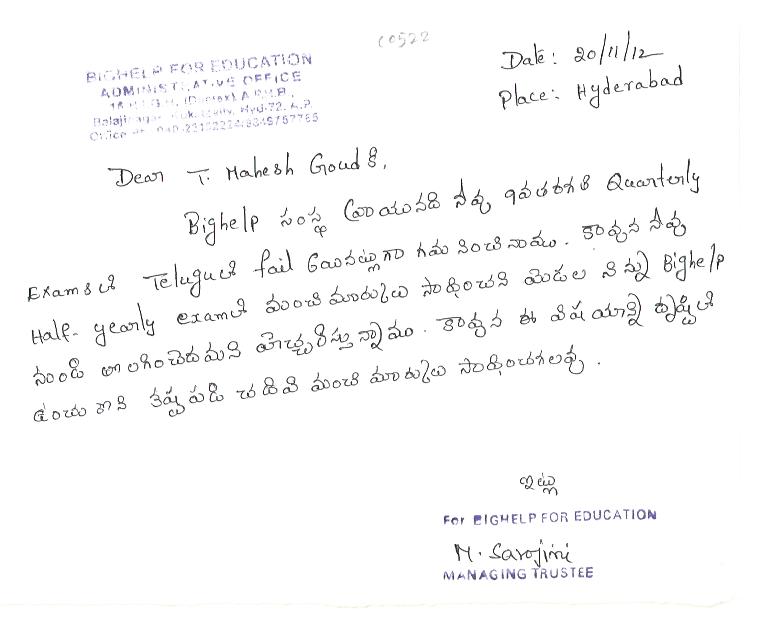 C0522
BIGHELP FOR EDUCATION
ADMINISTRATIVE OFFICE
Balajinagar, Kukatpally, Hyd-72. A.P.
Date: 20/11/12
Place: Hyderabad
Dear T. Mahesh Goud కి,
Bighelp సంస్థ వ్రాయునది నీవు ఇవతరగతి Quarterly
Exams లో Telugu లో fail అయినట్లుగా గమనించినాము. కావున నీవు
Half-yearly exam లో మంచి మార్కులు సాధించని యెడల నిన్ను Bighelp
నుండి తొలగించెదమని హెచ్చరిస్తున్నాము. కావున ఈ విషయాన్ని దృష్టిలో
ఉంచుకొని కష్టపడి చదివి మంచి మార్కులు సాధించగలవు.
ఇట్లు
For BIGHELP FOR EDUCATION
M. Sarojini
MANAGING TRUSTEE